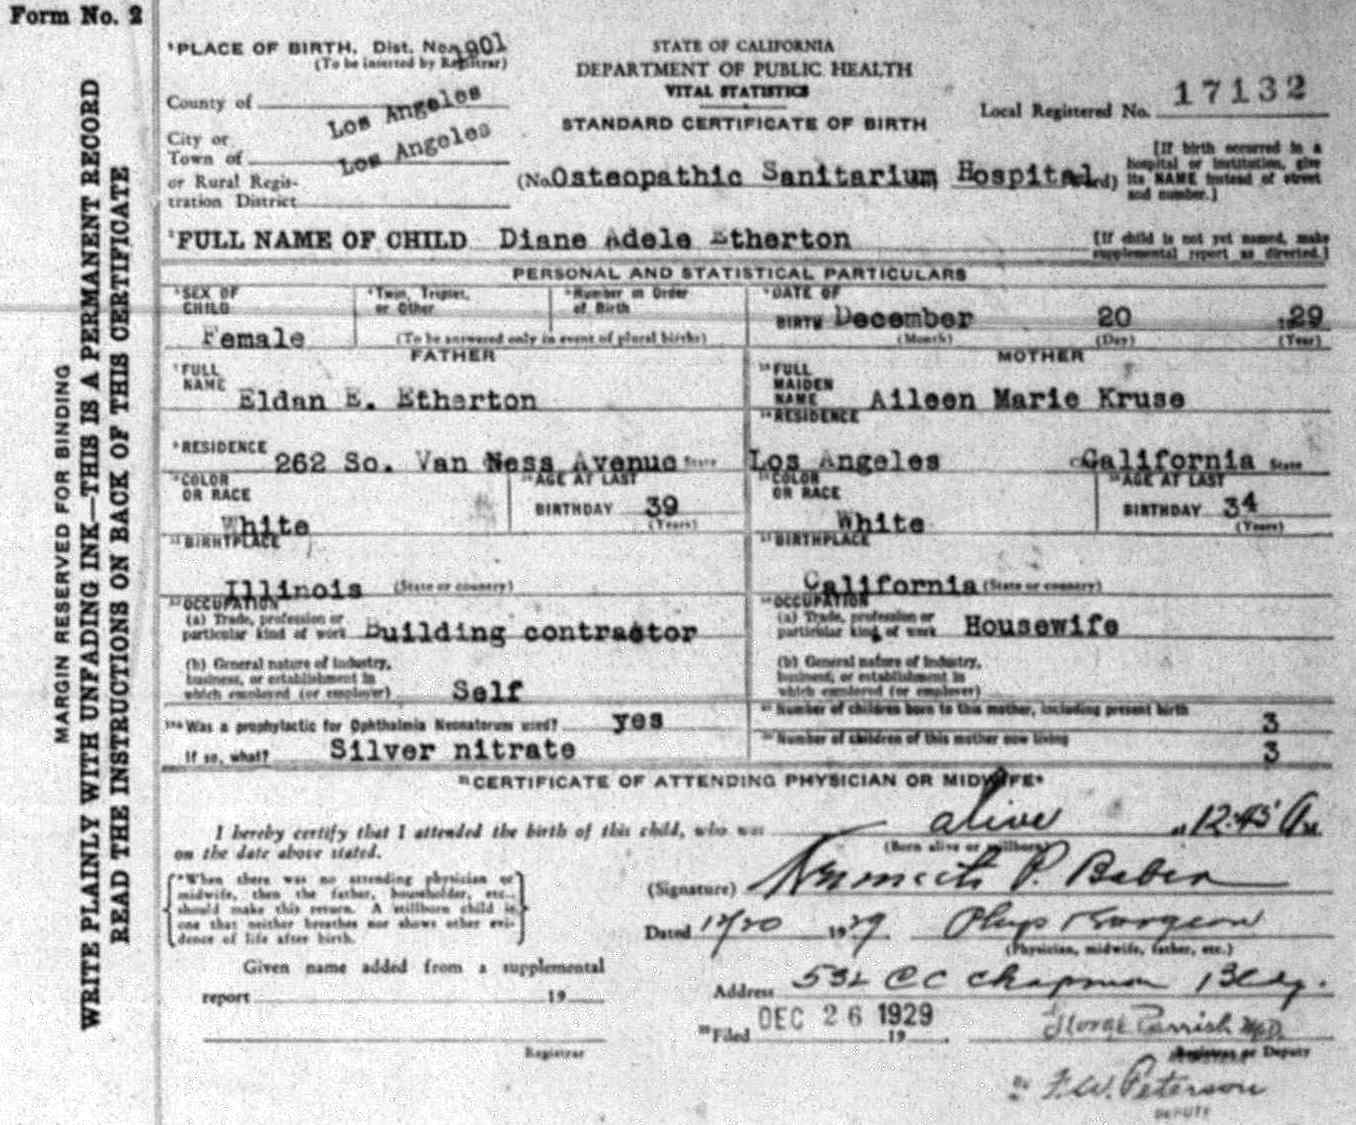 Form No. 2
MARGIN RESERVED FOR BINDING
WRITE PLAINLY WITH UNFADING INK—THIS IS A PERMANENT RECORD
READ THE INSTRUCTIONS ON BACK OF THIS CERTIFICATE
1 PLACE OF BIRTH. Dist. No. 1901
(To be inserted by Registrar)
County of Los Angeles
City or
Town of Los Angeles
or Rural Regis-
tration District
STATE OF CALIFORNIA
DEPARTMENT OF PUBLIC HEALTH
VITAL STATISTICS
STANDARD CERTIFICATE OF BIRTH
Local Registered No. 17132
(No. Osteopathic Sanitarium Hospital
[If birth occurred in a
hospital or institution, give
its NAME instead of street
and number.]
2 FULL NAME OF CHILD Diane Adele Etherton
[If child is not yet named, make
supplemental report as directed.]
PERSONAL AND STATISTICAL PARTICULARS
SEX OF
CHILD Female
Twin, Triplet,
or Other
Number in Order
of Birth
(To be answered only in event of plural births)
DATE OF
BIRTH December 20 1929
(Month) (Day) (Year)
FATHER
FULL
NAME Eldan E. Etherton
RESIDENCE 262 So. Van Ness Avenue State
COLOR
OR RACE White
AGE AT LAST
BIRTHDAY 39
(Years)
BIRTHPLACE
Illinois (State or country)
OCCUPATION
(a) Trade, profession or
particular kind of work Building contractor
(b) General nature of industry,
business, or establishment in
which employed (or employer) Self
MOTHER
FULL
MAIDEN
NAME Aileen Marie Kruse
RESIDENCE
Los Angeles California State
COLOR
OR RACE White
AGE AT LAST
BIRTHDAY 34
(Years)
BIRTHPLACE
California (State or country)
OCCUPATION
(a) Trade, profession or
particular kind of work Housewife
(b) General nature of industry,
business, or establishment in
which employed (or employer)
Was a prophylactic for Ophthalmia Neonatorum used? yes
If so, what? Silver nitrate
Number of children born to this mother, including present birth 3
Number of children of this mother now living 3
CERTIFICATE OF ATTENDING PHYSICIAN OR MIDWIFE*
I hereby certify that I attended the birth of this child, who was alive at 12:45 A m.
(Born alive or stillborn)
on the date above stated.
*When there was no attending physician or
midwife, then the father, householder, etc.,
should make this return. A stillborn child is
one that neither breathes nor shows other evi-
dence of life after birth.
(Signature) Kenneth P. Baber
Dated 12/20 1929 Phys Surgeon
(Physician, midwife, father, etc.)
Given name added from a supplemental
report 19
Registrar
Address 532 CC Chapman Bldg.
Filed DEC 26 1929 19 George Parrish M.D.
Registrar or Deputy
By F.W. Peterson
DEPUTY